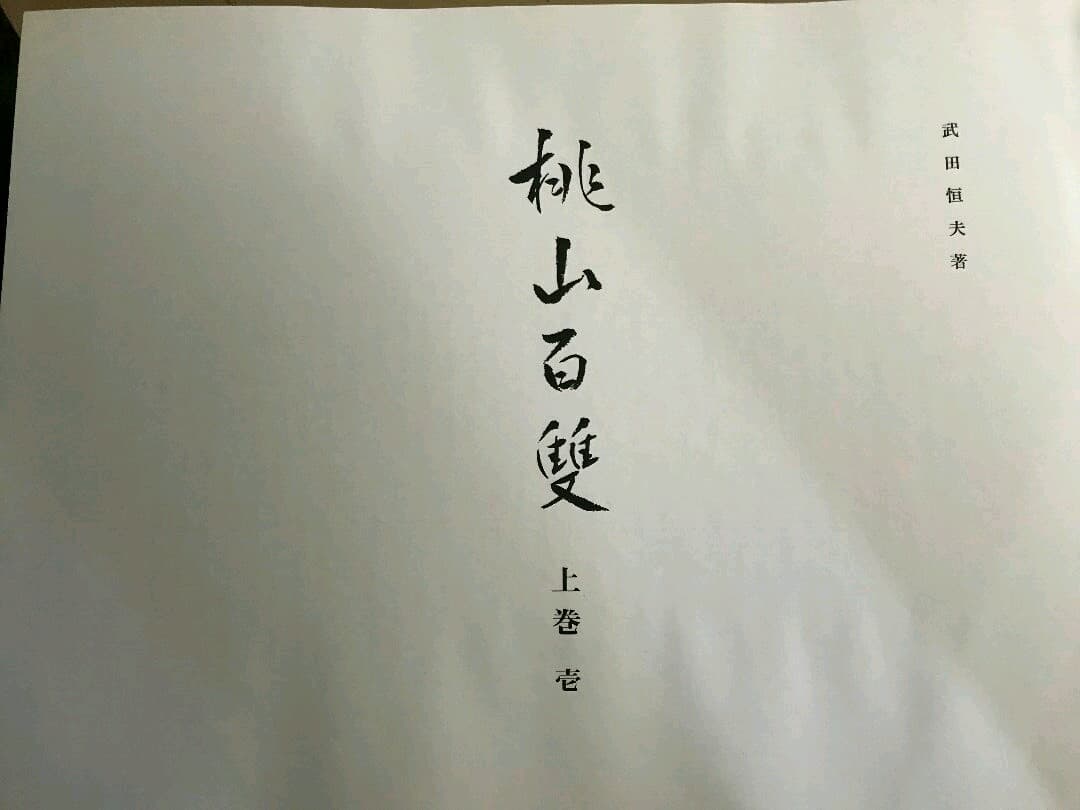 武田恒夫著
桃山百雙
上巻 壱